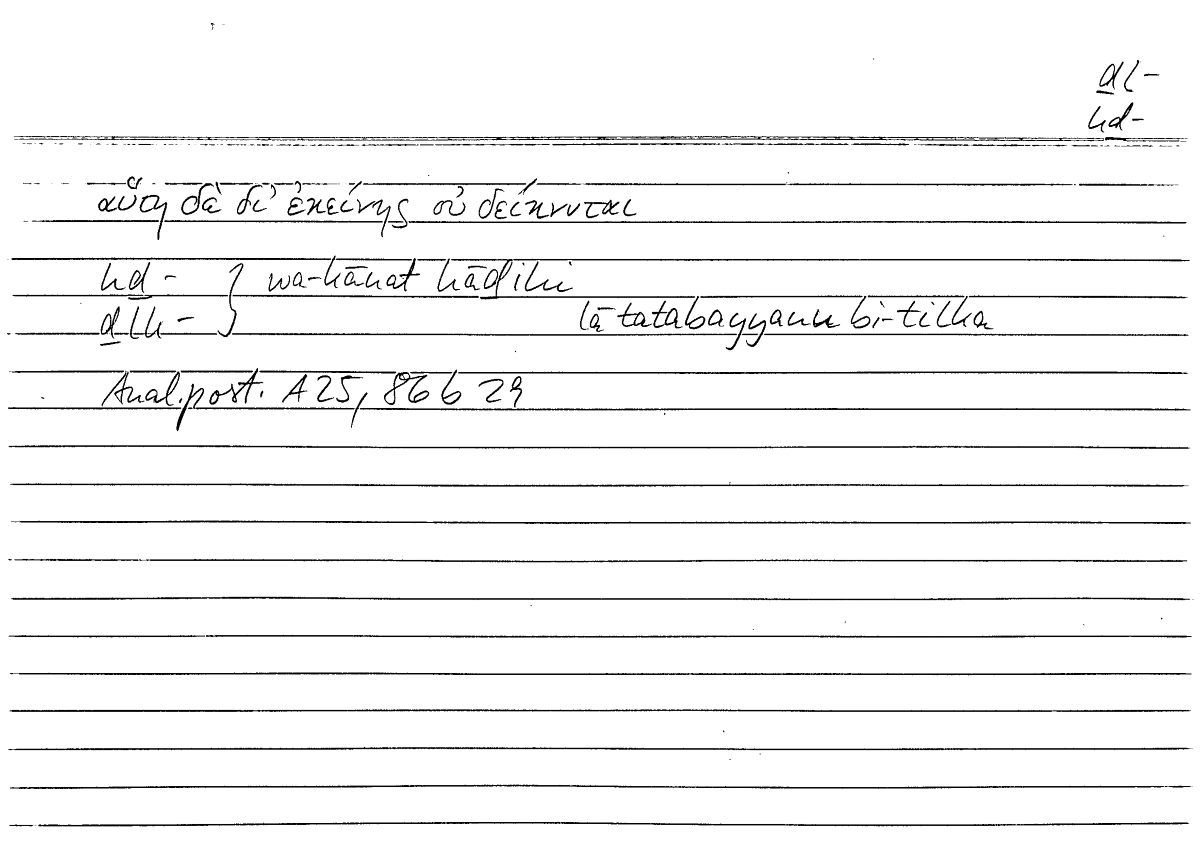 ḏl-
hḏ-
αὕτη δὲ δι' ἐκείνης οὐ δείκνυται
hḏ- } wa-kānat hāḏihi
ḏlk- lā tatabayyanu bi-tilka
Anal.post. A25, 86 b 29